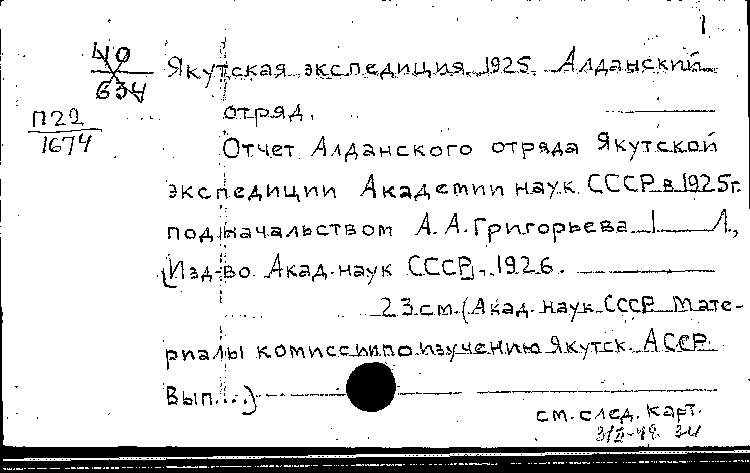 1
40
634
Якутская экспедиция, 1925. Алданский
отряд.
П22
1674
Отчет Алданского отряда Якутской
экспедиции Академии наук СССР в 1925г.
под начальством А. А. Григорьева. Л.,
Изд-во Акад. наук СССР, 1926.
23 см. (Акад. наук СССР. Мате-
риалы комиссии по изучению Якутск. АССР.
Вып....)
см. след. карт.